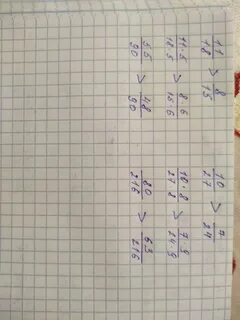 11/18 > 8/15 10/27 > 7/24
11·5/18·5 > 8·6/15·6 10·8/27·8 > 7·9/24·9
55/90 > 48/90 80/216 > 63/216